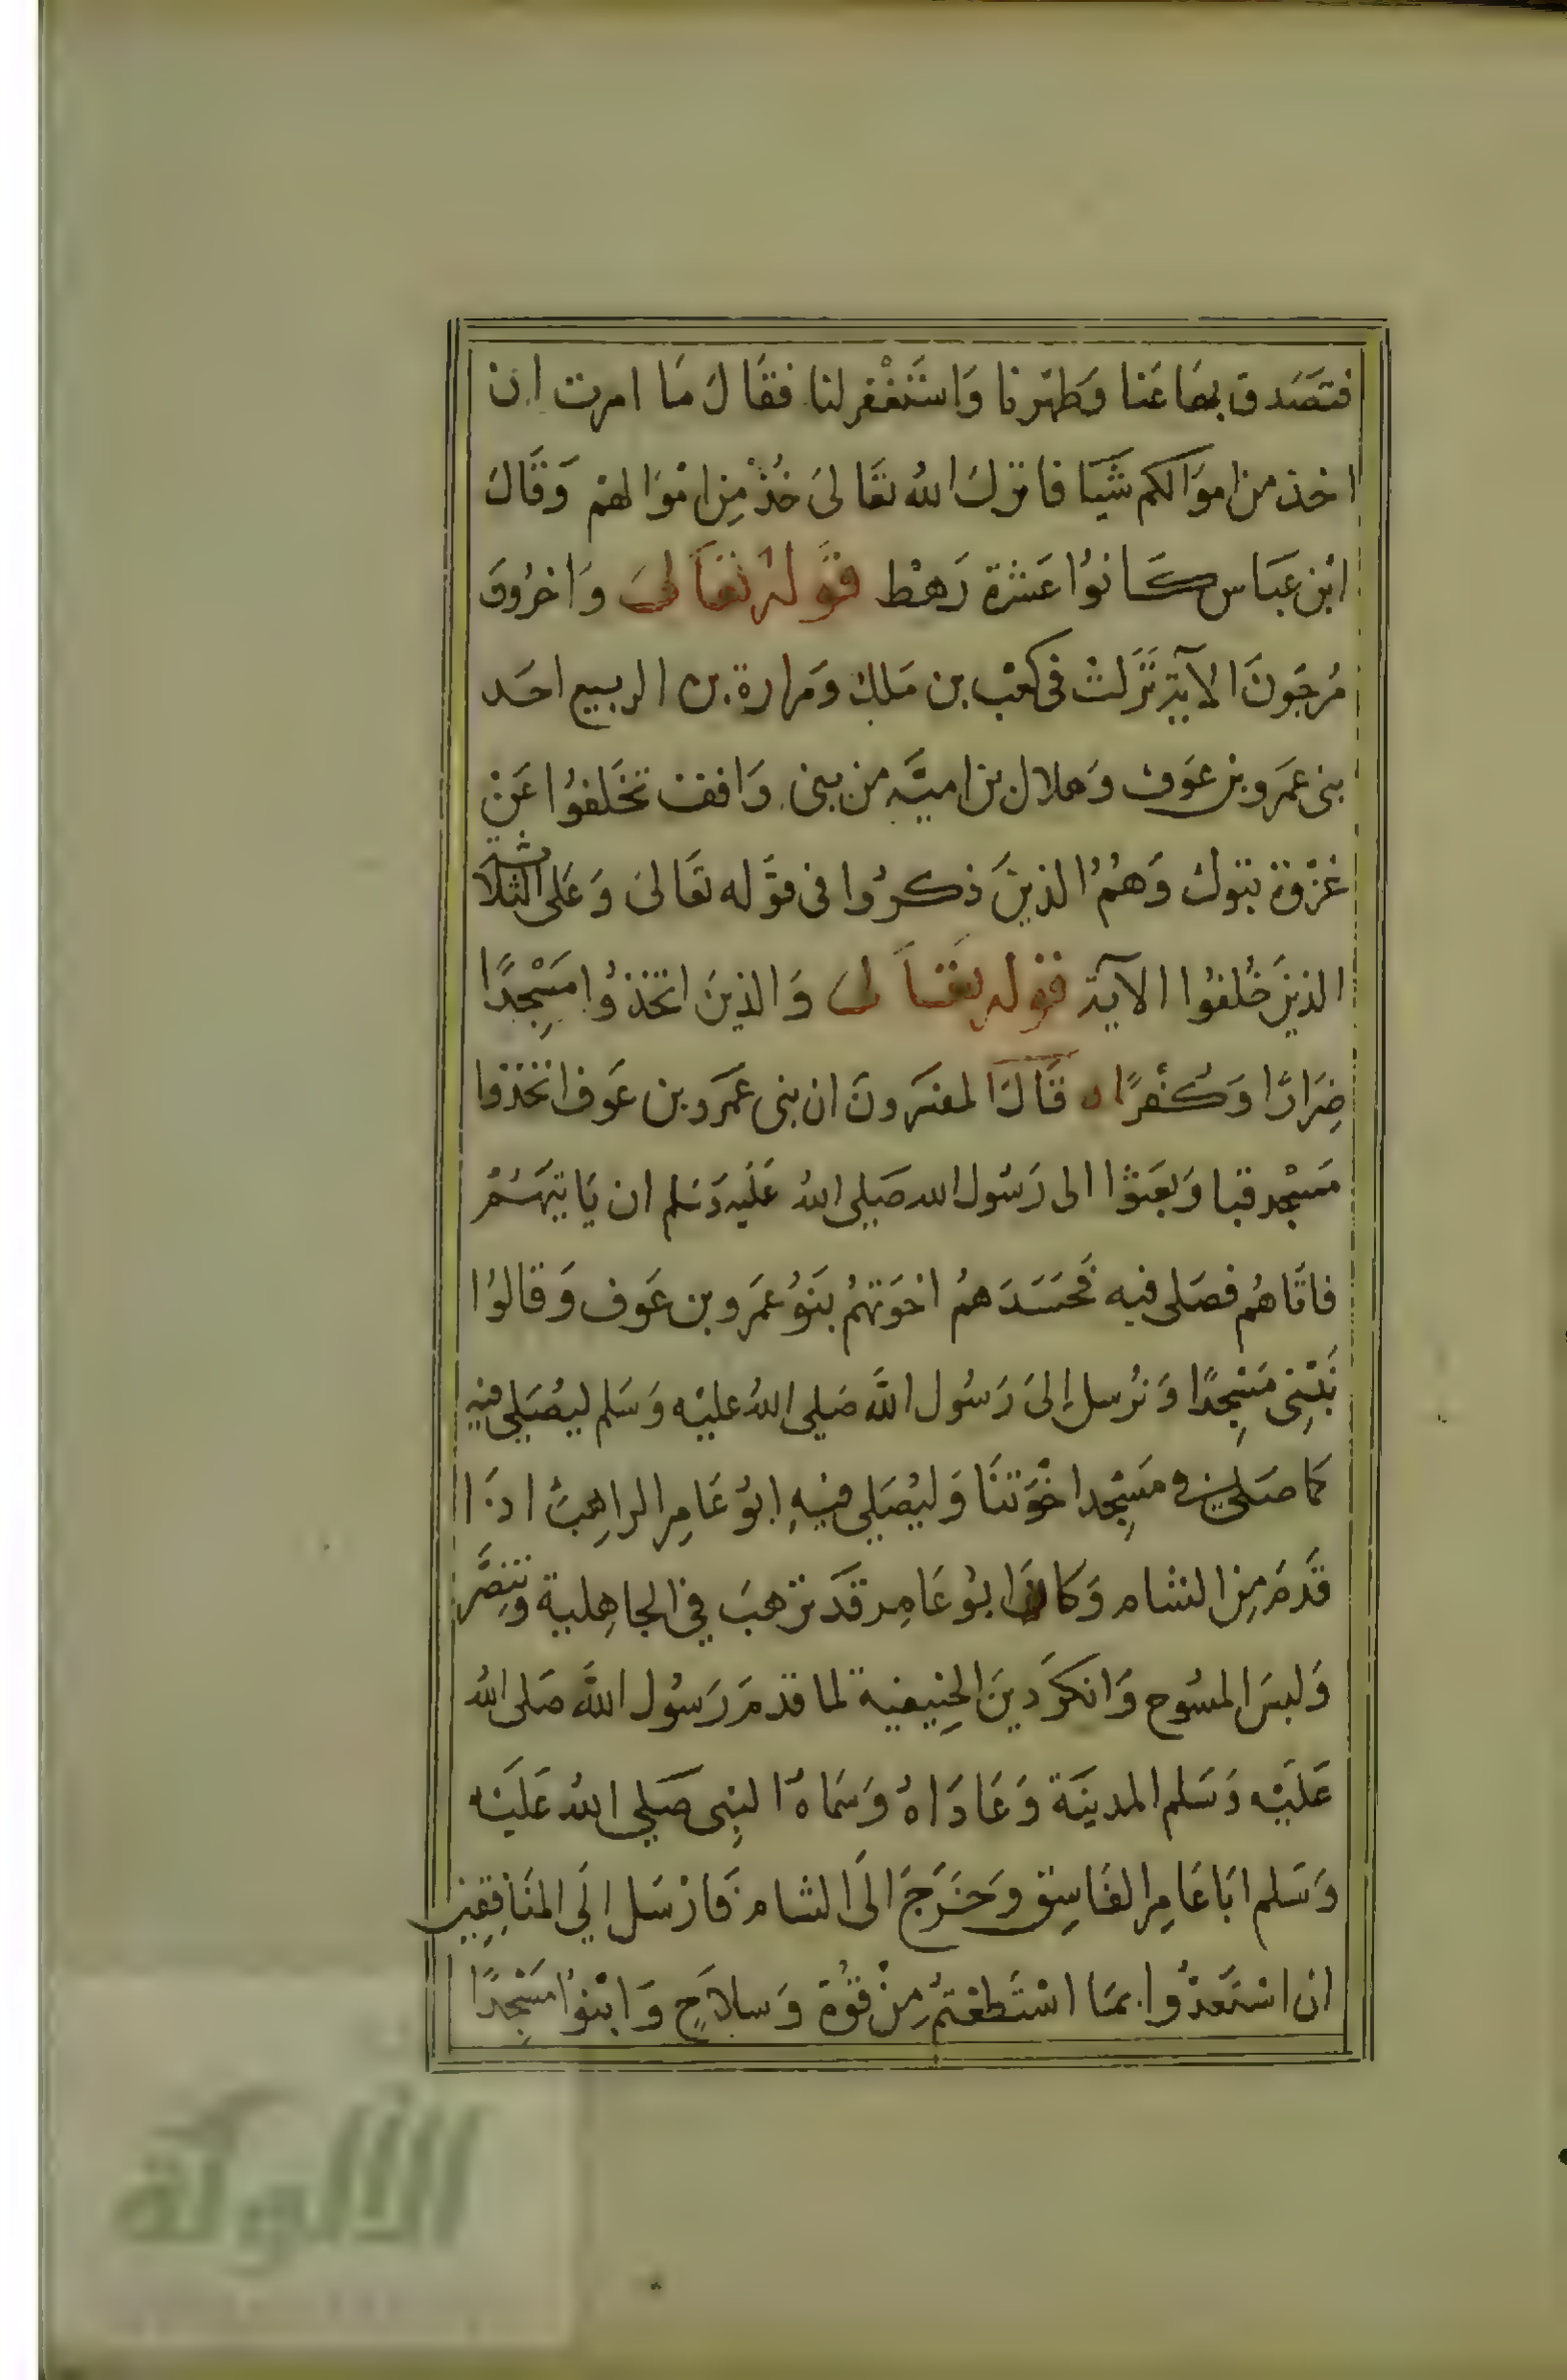 فتصَدق بهَا عَنا وَطهّرنا وَاسْتَغْفر لنا فقَالَ مَا امرت ان
اخذ من اموَالكم شَيا فانزلَ اللهُ تعَالىَ خُذْ مِن امْوَالهمْ وَقَالَ
ابْن عبَاس كَانوُا عَشرة رَهْط قوَلهُ تعَالىَ وَاخرُونَ
مُرجَونَ الآية نَزَلتْ فى كعْب بن مَلك وَمرارة بن الربيع احَد
بنى عمَرو بن عوَف وَهلال بن اميَّة من بنى وَاقف تخَلفوُا عَنْ
غزْوَة تبَوك وَهُمُ الذينَ ذكرُوا فى قوَله تعَالىَ وَعَلى الثلاثة
الذينَ خُلفوُا الآية قوَله تعَالىَ وَالذينَ اتخذوُا مَسْجِدًا
ضِرَارًا وَكُفْرًا قَالَ المفسَرونَ ان بنى عَمَرو بن عَوف اتخذوا
مَسْجد قبا وَبعَثوُا الى رَسُول الله صَلى اللهُ عَلَيه وَسَلم ان يَاتيَهمُ
فاتَاهُم فصَلى فيه فحَسَدَهمُ اخوَتهُمْ بَنوُ عمَرو بن عَوف وَقالوُا
نَبْتَنِى مَسْجِدًا وَنُرسل إلىَ رَسُول اللَّه صَلى اللهُ عليْه وَسَلم ليُصَلِي فيه
كمَا صَلى فى مَسْجِد اخْوَتنَا وَليُصَلِي فيهِ ابُو عَامِر الراهِبُ اذَا
قَدمَ مِن الشام وَكانَ ابوُ عَامِر قَدَ ترَهبَ فِي الجاهِلية وَتنَصَّرَ
وَلبسَ المسُوح وَانكرَ دينَ الحِنيفية لما قدمَ رَسُول اللَّه صَلى اللهُ
عَلَيْه وَسَلم المدينَة وَعَادَاهُ وَسَماهُ النبِى صَلي اللهُ عَلَيْه
وَسَلم ابَا عَامِر الفَاسِق وَخَرَجَ الَى الشام فَارْسَل الَي المنَافِقِين
ان اسْتَعدُّوا بمَا اسْتَطعْتمُ مِنْ قُوة وَسلاَحٍ وَابْنوُا مَسْجِدًا
الألوكة